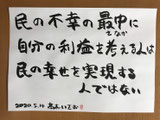 民の不幸の最中に
さなか
自分の利益を考える人は
民の幸せを実現する
人ではない
2020.5.14